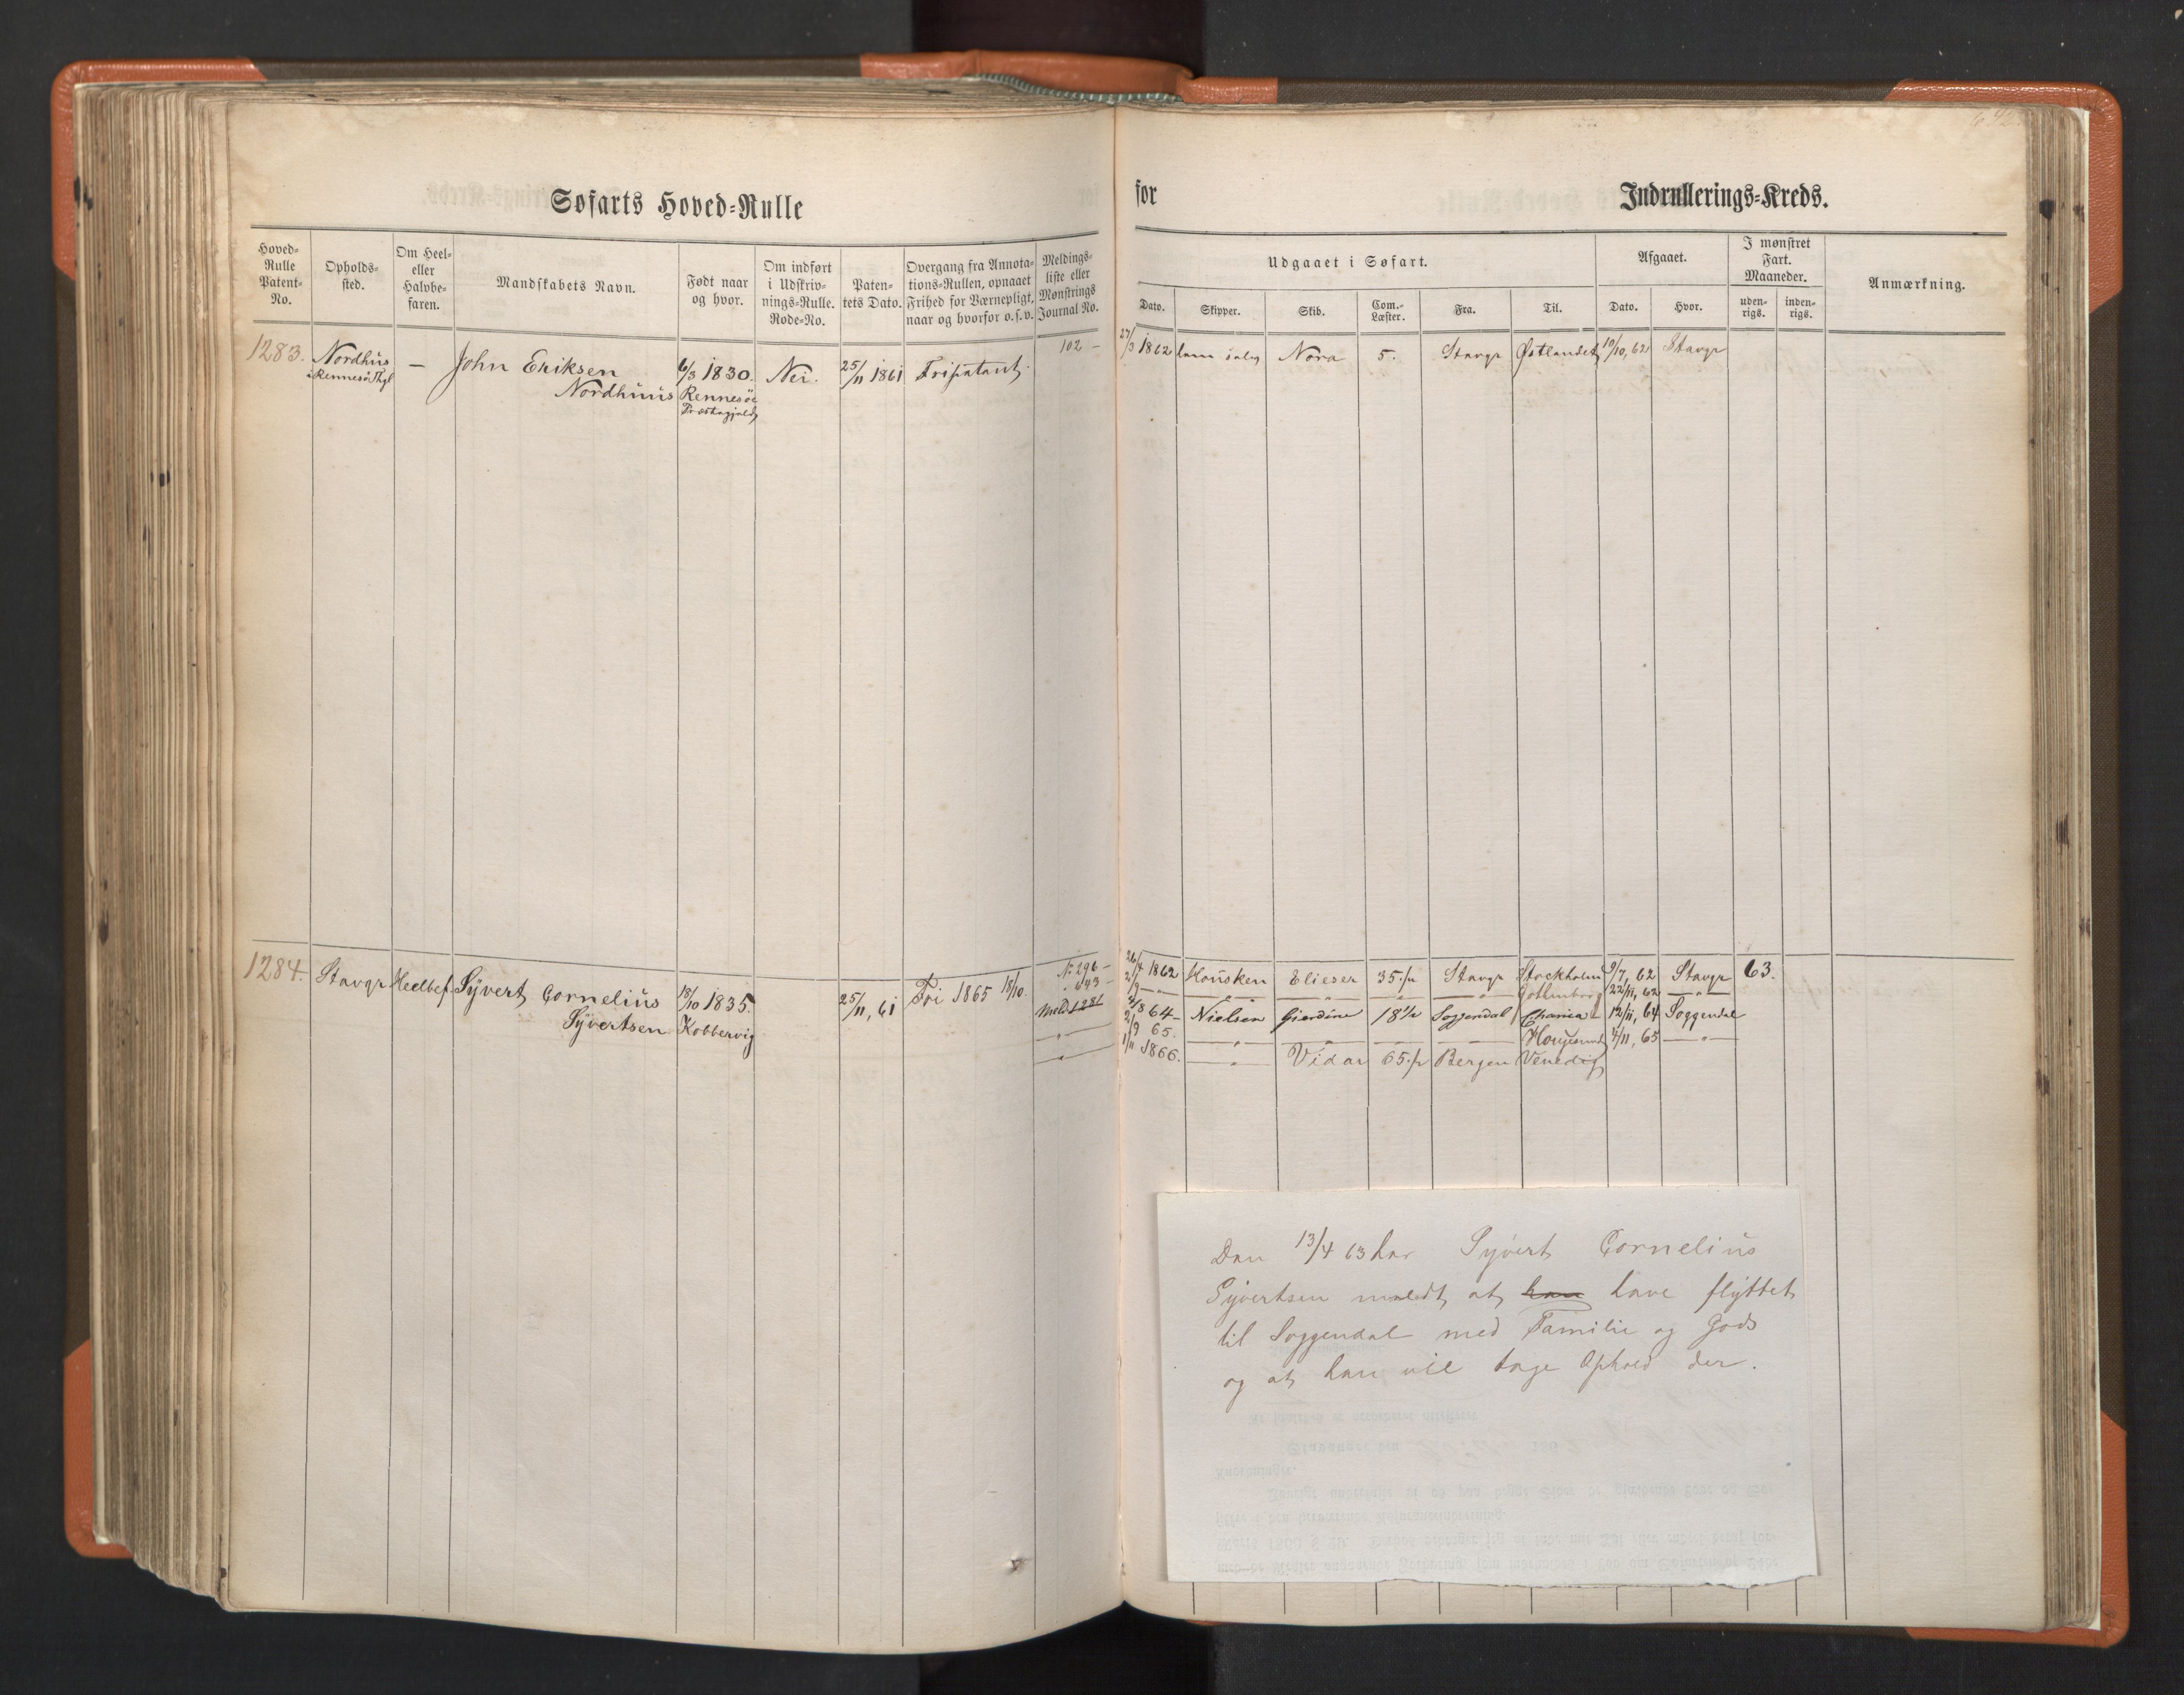 Søfarts Hoved-Rulle
for Indrullerings-Kreds.
Hoved-Rulle Patent-No.
Opholds-sted.
Om Heel- eller Halvbe-faren.
Mandskabets Navn.
Født naar og hvor.
Om indført i Udskriv-nings-Rulle. Rode-No.
Paten-tets Dato.
Overgang fra Annota-tions-Rullen, opnaaet Frihed for Værnepligt, naar og hvorfor o. s. v.
Meldings-liste eller Mønstrings Journal No.
Udgaaet i Søfart.
Dato.
Skipper.
Skib.
Com.-Læster.
Fra.
Til.
Afgaaet.
Dato.
Hvor.
I mønstret Fart. Maaneder.
uden-rigs.
inden-rigs.
Anmærkning.
1283. Nordhus — John Eriksen 6/3 1830. Nei. 25/11 1861 Fripatent. 102 — 27/3 1862 Nora 5. Stavgr Østlandet 10/10, 62 Stavgr
i Rennesø Nordhuus Rennesøe
Præstegjæld
1284. Stavgr Heelbef. Syvert Cornelius 18/10 1835. 25/11, 61 Fri 1865 18/10. No 296 — 26/4 1862 Housken Elieser 35./. Stavgr Stockholm 9/7, 62 Stavgr 63.
Syvertsen Kobbervig
643 — 2/9 — " — — " — — " — — " — Gothenborg 22/11, 62 — " —
Meld 1281 64 — Nielsen Gierdine 18 1/2 Soggendal 12/11, 64 Soggendal
— " — 2/9 65. — " — — " — — " — — " — 4/11, 65 — " —
— " — 1/11 1866. — " — Vidar 65./. Bergen Venedig
Den 13/4 63 har Syvert Cornelius
Syvertsen meldt at han have flyttet
til Soggendal med Familie og Gods
og at han vil tage Ophold der.